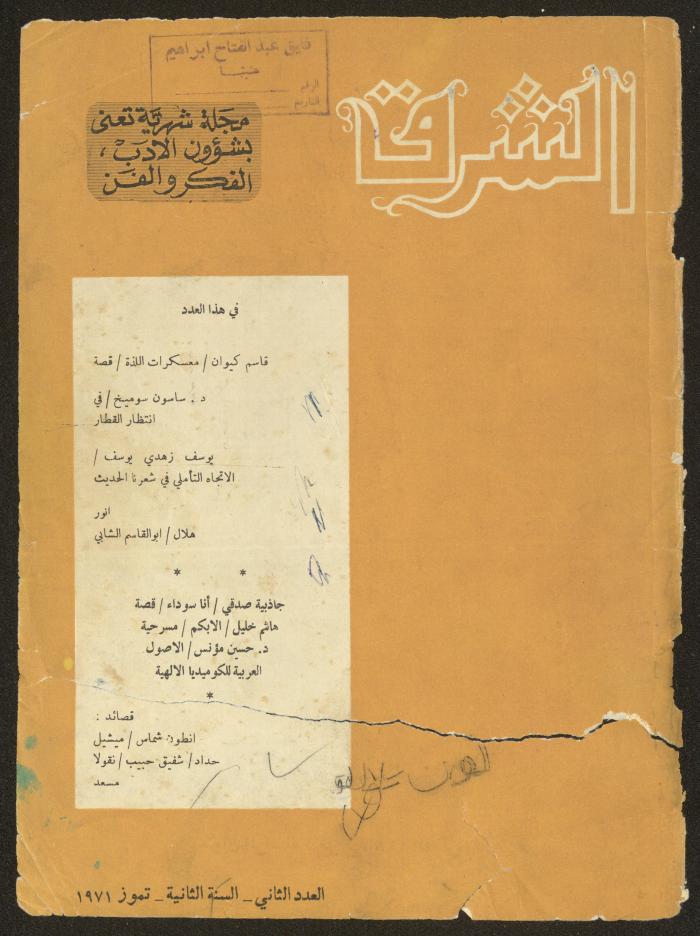 فايق عبد الفتاح ابراهيم
الرقم
التاريخ
الشرق
مجلة شهرية تعنى
بشؤون الادب،
الفكر والفن
في هذا العدد
قاسم كيوان / معسكرات اللذة / قصة
د. ساسون سوميخ / في
انتظار القطار
يوسف زهدي يوسف /
الاتجاه التأملي في شعرنا الحديث
انور
هلال / ابوالقاسم الشابي
* *
جاذبية صدقي / أنا سوداء / قصة
هاشم خليل / الابكم / مسرحية
د. حسين مؤنس / الاصول
العربية للكوميديا الالهية
*
قصائد :
انطون شماس / ميشيل
حداد / شفيق حبيب / نقولا
مسعد
العدد الثاني _ السنة الثانية _ تموز ١٩٧١